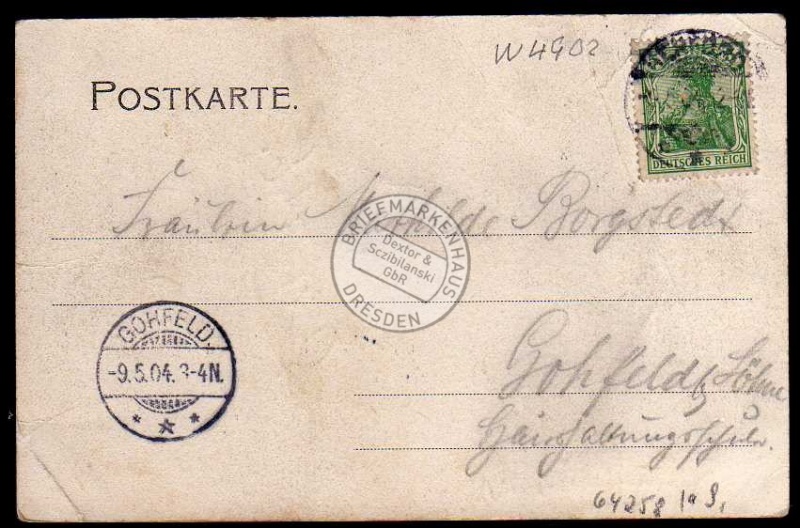 W4902
POSTKARTE.
DEUTSCHES REICH
Fräulein Borgstedt
BRIEFMARKENHAUS
Dextor &
Sczibilanski
GbR
DRESDEN
GOHFELD.
-9.5.04.3-4N.
Gohfeld b/ Löhne
Haushaltungsschule.
64258 Ia S,